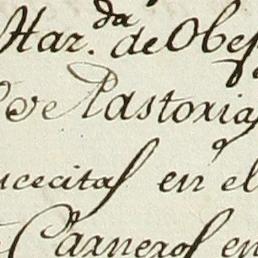 Har.da de Obe
de Pastoria
cecitas en el
Carneros en